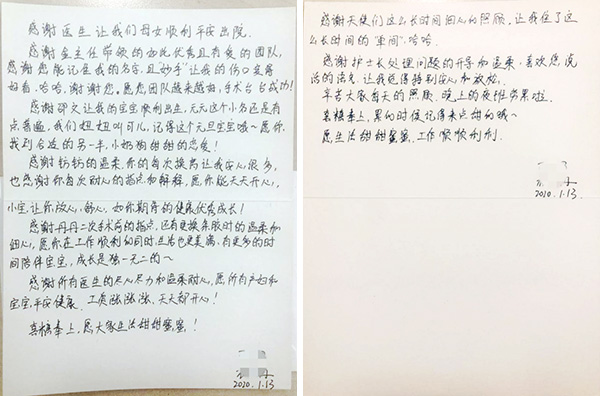 感谢医生让我们母女顺利平安出院。
感谢金主任带领的如此优秀且有爱的团队,
感谢您能记住我的名字,且"妙手"让我的伤口变得
好看,哈哈,谢谢您。愿您团队越来越好,手术台台成功!
感谢邵文让我的宝宝顺利出生,元元这个小名还是有
点普遍,我们妞妞叫可儿,记得这个元旦宝宝哦~愿你
找到合适的另一半,小奶狗甜甜的恋爱!
感谢钫钫的温柔,你的每次换药让我安心很多,
也感谢你每次耐心的指点和解释,愿你能天天开心,
小宝,让你放心,舒心,如你期待的健康优秀成长!
感谢丹丹二次手术前的指点,还有更换条胶时的温柔和
细心,愿你在工作顺利的同时,生活也更美满,有更多的时
间陪伴宝宝,成长是独一无二的~
感谢所有医生的尽心尽力和温柔耐心,愿所有产妇和
宝宝,平安健康,工资涨涨涨,天天都开心!
喜糖奉上,愿大家生活甜甜蜜蜜!
2020.1.13
感谢天使们这么长时间细心的照顾,让我住了这
么长时间的"单间",哈哈。
感谢护士长处理问题的开导和温柔,喜欢您说
话的语气,让我觉得特别安心和放松。
辛苦大家每天的照顾,晚上的夜班劳累啦。
喜糖奉上,累的时候记得来点甜的哦~
愿生活甜甜蜜蜜,工作顺顺利利。
2020.1.13